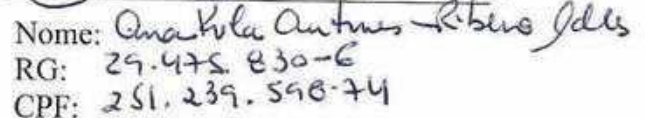 Nome: Ana Antunes Ribeiro
RG: 29.475.830-6
CPF: 251.239.598-74